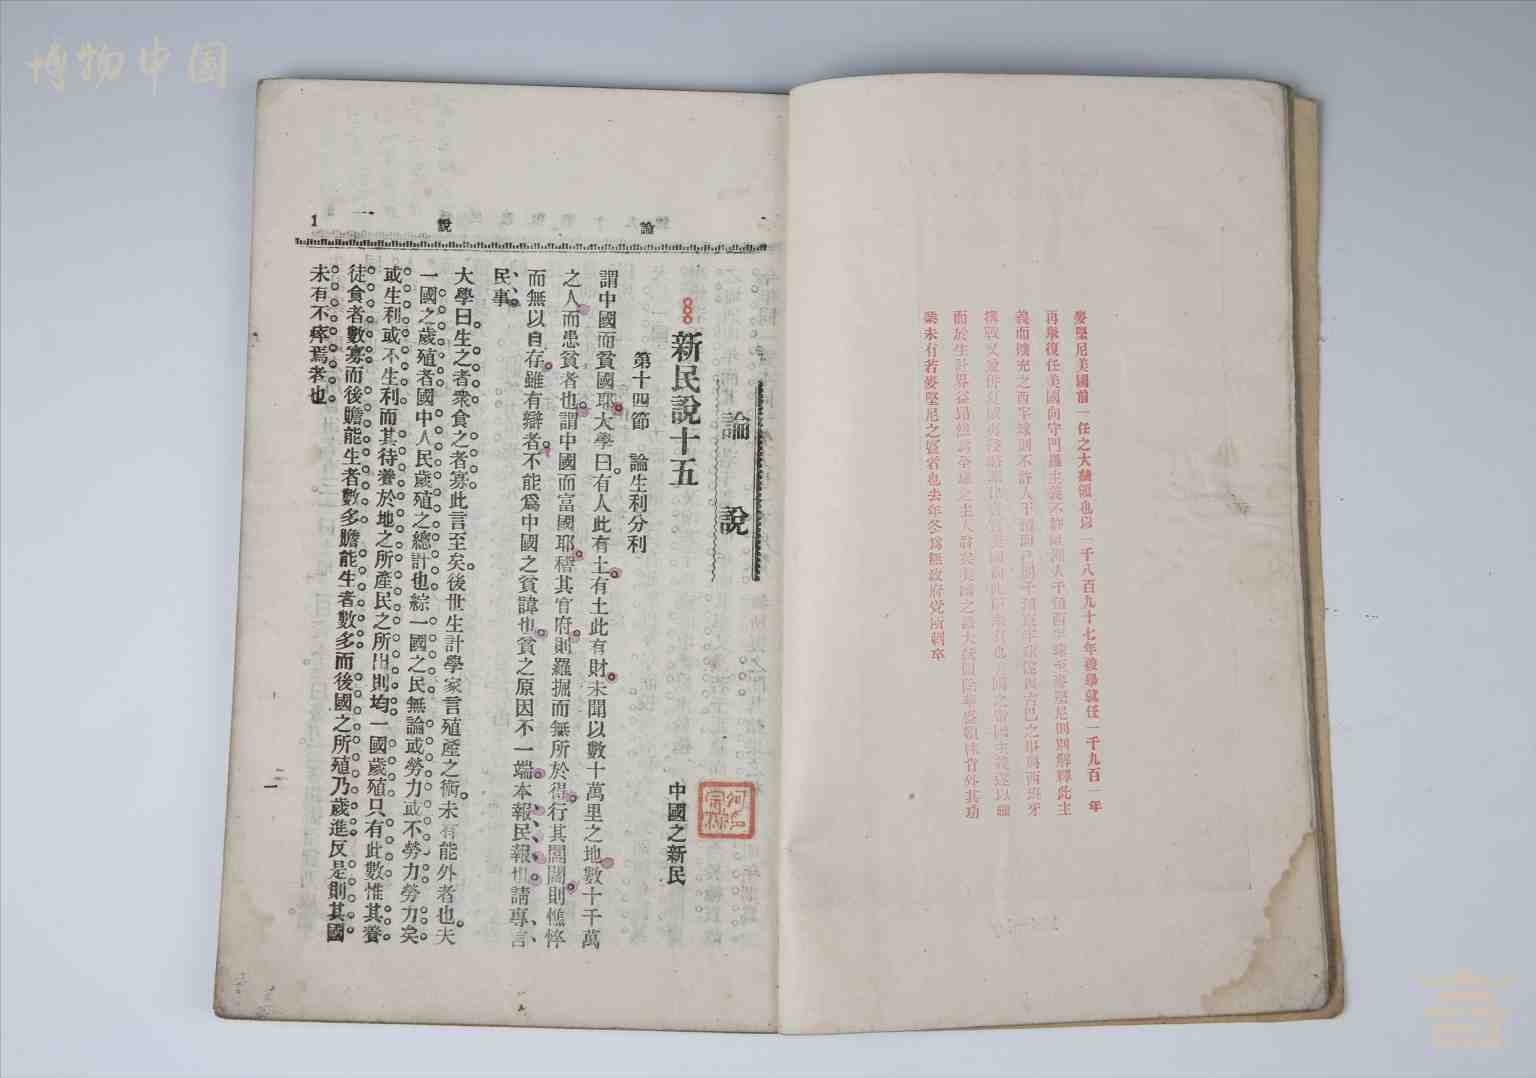 博物中国
麥堅尼美國前一任之大統領也以一千八百九十七年被舉就任一千九百一年
再舉復任美國向守門羅主義不許歐洲人干預西半球至麥堅尼則別解釋此主
義而擴充之西半球則不許人干預而己則干預東半球
而於生計界益昂然為全球之主人翁矣美國之諸大統領除華盛頓林肯外其功
業未有若麥堅尼之盛者也去年冬為無政府党所刺卒
論說
一
1
論說
新民說十五
中國之新民
第十四節 論生利分利
謂中國而貧國耶大學曰有人此有土有土此有財未聞以數十萬里之地數十千萬
之人而患貧者也謂中國而富國耶稽其官府則羅掘而無所於得行其閭閻則憔悴
而無以自存雖有辯者不能為中國之貧諱也貧之原因不一端本報民報惟請專言
民事
大學曰生之者衆食之者寡此言至矣後世生計學家言殖產之術未有能外者也夫
一國之歲殖者國中人民歲殖之總計也綜一國之民無論或勞力或不勞力勞力矣
或生利或不生利而其待養於地之所產民之所出則均一國歲殖只有此數惟其養
徒食者數寡而後贍能生者數多贍能生者數多而後國之所殖乃歲進反是則其國
未有不瘁焉者也
一